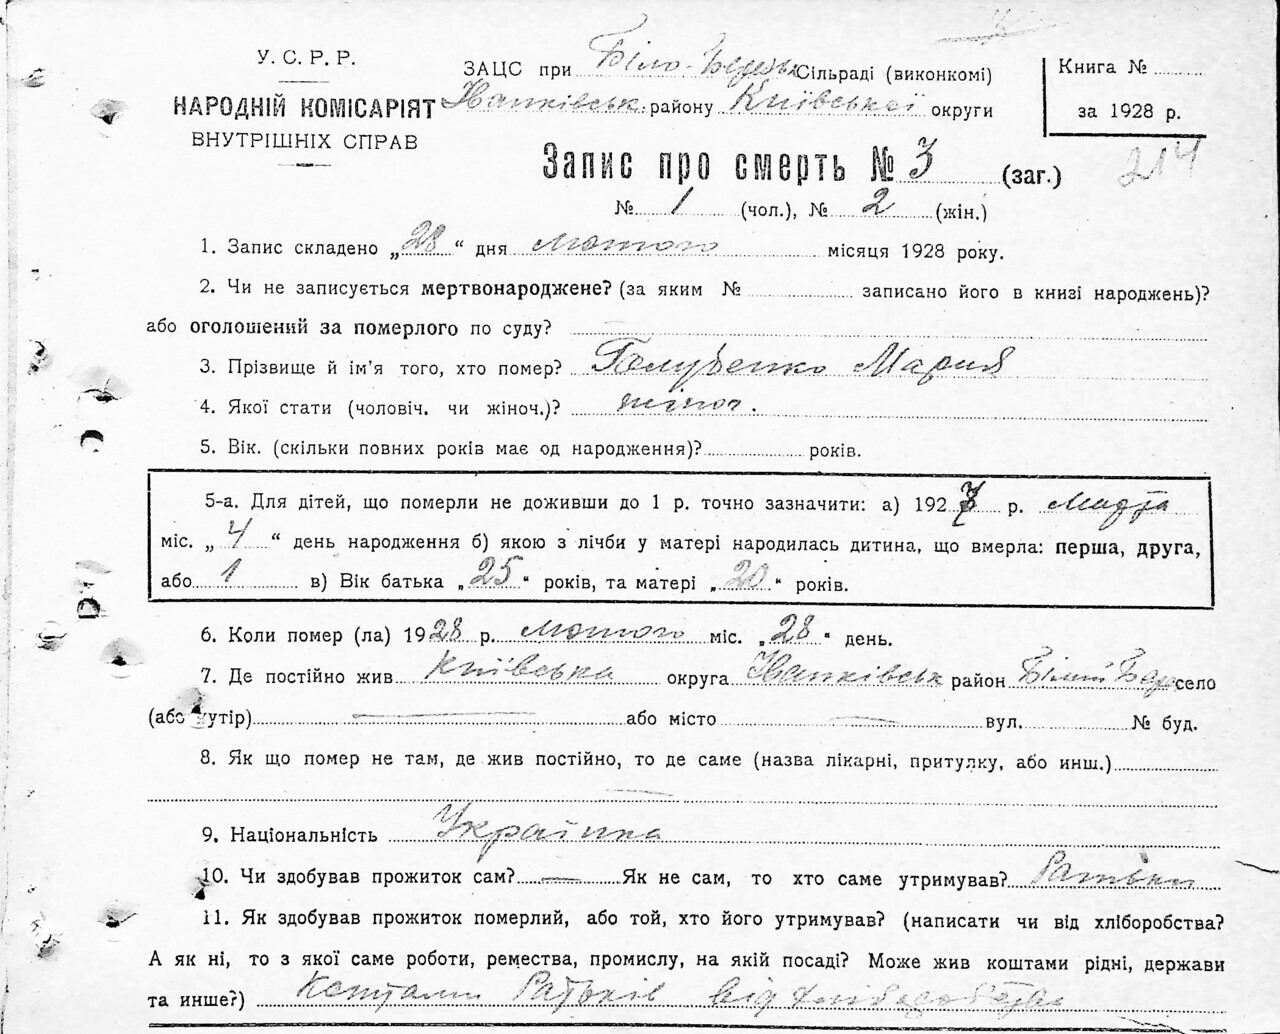 У. С. Р. Р.
НАРОДНІЙ КОМІСАРІЯТ
ВНУТРІШНІХ СПРАВ
ЗАЦС при Біло-Березьк Сільраді (виконкомі)
Іванківськ. району Київської округи
Книга №
за 1928 р.
214
Запис про смерть № 3 (заг.)
№ 1 (чол.), № 2 (жін.)
1. Запис складено „28“ дня лютого місяця 1928 року.
2. Чи не записується мертвонароджене? (за яким № записано його в книзі народжень)?
або оголошений за померлого по суду?
3. Прізвище й ім'я того, хто помер? Голубенко Мария
4. Якої стати (чоловіч. чи жіноч.)? жіноч.
5. Вік. (скільки повних років має од народження)? років.
5-а. Для дітей, що померли не доживши до 1 р. точно зазначити: а) 1927 р.
міс. „4“ день народження б) якою з лічби у матері народилась дитина, що вмерла: перша, друга,
або 1 в) Вік батька „25“ років, та матері „20“ років.
6. Коли помер (ла) 1928 р. лютого міс. „28“ день.
7. Де постійно жив Київська округа Іванківськ район Білий Бере село
(або хутір) або місто вул. № буд.
8. Як що помер не там, де жив постійно, то де саме (назва лікарні, притулку, або инш.)
9. Національність Українка
10. Чи здобував прожиток сам? — Як не сам, то хто саме утримував? Батьки
11. Як здобував прожиток померлий, або той, хто його утримував? (написати чи від хліборобства?
А як ні, то з якої саме роботи, ремества, промислу, на якій посаді? Може жив коштами рідні, держави
та инше?) Коштами Батьків від хліборобства